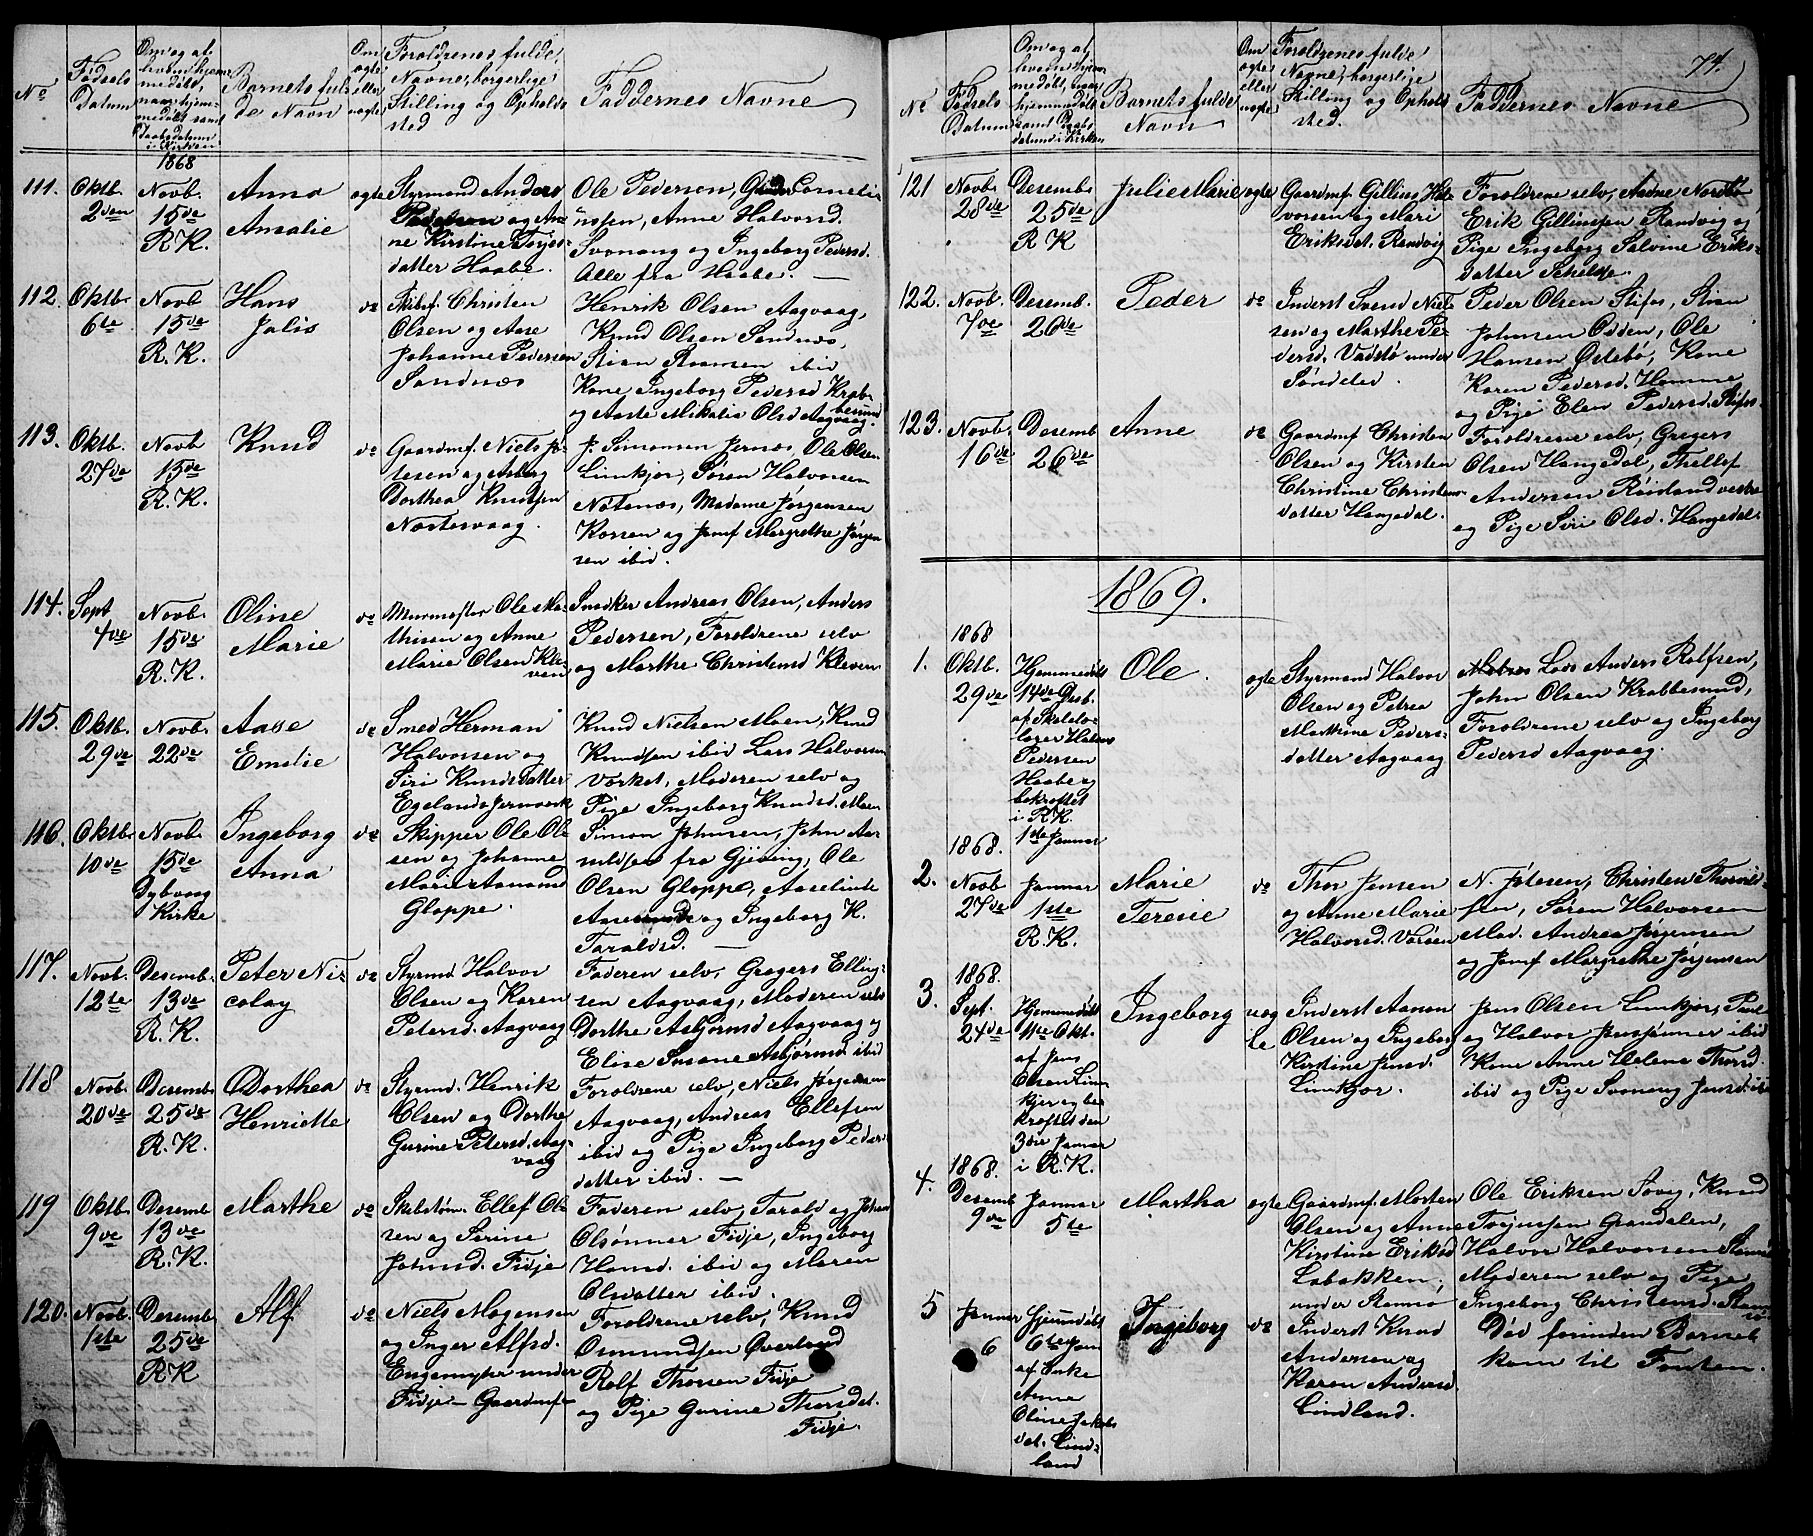 74.
No
Fødsels Datum
Om og at hvem hjemmedøbt, naar hjemmedøbt samt Daabsdatum i Kirken
Barnets fulde Navn
Om ægte eller uægte
Forældrenes fulde Navne, borgerlige Stilling og Opholdssted
Faddernes Navne
1868
111.
Oktb.
2den
Novb.
15de
R.K.
Anna
Amalie
ægte
Styrmand Anders
Pedersen og An-
ne Kirstine Terjes-
datter Haabe.
Ole Pedersen, Corneli-
ussen, Anne Halvorsd.
Svonaug og Ingeborg Pedersd.
Alle fra Haabe. —
112.
Oktbr.
6te
Novb.
15de
R.K.
Hans
Julis
do
Skibsf. Christen
Olsen og Aase
Johanne Pedersen
Sandnæs
Henrik Olsen Aagvaag,
Knud Olsen Sandnæs,
Stian ibid
Kone Ingeborg Pedersd Krabe-
og Aaste Mikalia Olsd Aagvaag.
besund
113.
Oktb.
27de
Novb.
15de
R.K.
Knud
do
Gaardmf. Niels Jø-
tesen og Asborg
Dorthea Knudsen
Næstesvaag.
J. Simonsen Jernæs, Ole Olsen
Limkjær, Søren Halvorsen
Notenæs, Madame Jørgensen
Kossen og Jomf Margrethe Jørgen
sen ibid.
114.
Sept
4de
Novb.
15de
R.K.
Oline
Marie
do
Murmester Ole Ma-
thisen og Anne
Marie Olsen Kle-
ven
Snedker Andreas Olsen, Anders
Pedersen, Forældrene selv
og Marthe Christensd Kleven
115.
Oktb.
29de
Novb.
22de
Aase
Emelie
do
Smed Herman
Halvorsen og
Siri Knudsdatter
Egelandsjernværk
Knud Nielsen Moen, Knud
Knudsen ibid Lars Halvorsen
Værket, Moderen selv og
Pige Ingeborg Knudsd. Moen
116.
Oktbr.
10de
Novb.
15de
Dybvaag
Kirke
Ingeborg
Anna
do
Skipper Ole Ol-
sen og Johanne
Marie Aanonsd
Gloppe.
Simon Johnsen, John Aa-
nildsen fra Gjeving, Ole
Olsen Gloppe, Aaselinde
og Ingeborg K.
Taraldsd. —
117.
Novb.
12te
Desemb.
13de
R.K.
Peter Ni-
colay
do
Styrmd Halvor
Olsen og Karen
Petersd. Aagvaag
Faderen selv, Gregers Elling-
sen Aagvaag, Moderen selv
Dorthe Asbjørnsd Aagvaag og
Elise Susane Asbjørnsd ibid
118
Novb.
20de
Desemb.
25de
R.K.
Dorthea
Henriette
do
Styrmd. Henrik
Olsen og Dorthe
Gurine Petersd. Aag-
vaag
Forældrene selv, Niels Jørgensen
Aagvaag, Andreas Ellefsen
ibid og Pige Ingeborg Peder
datter ibid. —
119
Oktb.
9de
Desemb
13de
R.K.
Marthe
do
Skibstøm. Ellef Ol-
sen og Serine
Johnsd. Fidje
Faderen selv, Tarald og Johan
Olsønner Fidje, Ingeborg
Hansd. ibid og Maren
Olsdatter ibid.
120.
Novb.
1ste
Desemb
25de
R.K
Alf
do
Niels Mogensen
og Inger Alfsd.
Engemyher under
Fidje — Gaardmf —
Forældrene selv, Knud
Osmundsen Øverland
Rolf Thorsen Fidje
og Pige Gurine Thorsdat.
Fidje.
No
Fødsels Datum
Om og at hvem hjemmedøbt, naar hjemmedøbt samt Daabsdatum i Kirken
Barnets fulde Navn
Om ægte eller uægte
Forældrenes fulde Navne, borgerlige Stilling og Opholdssted.
Faddernes Navne
121
Novb.
28de
Desemb
25de
R K
Julie Marie
ægte
Gaardmf Gilling Hal-
vorsen og Mari
Eriksdt. Randvig
Forældrene selv,
Erik Gillingsen Randvig og
Pige Ingeborg Salvine Eriks-
datter
122.
Novb.
7de
Desemb.
26de
Peder
do
Inderst Svend Niel
sen og Marthe Pe-
dersd. Vadstø under
Søndeled.
Peder Olsen Stifos, Stian
Johnsen Odden, Ole
Hansen Østebø, Kone
Karen Pedersd. Homme
og Pige Elen Pedersd. Stifos.
123.
Novb.
16de
Desemb
26de
Anne
do
Gaardmf Christen
Olsen og Kirsten
Christine Christens-
datter Hangedal.
Forældrene selv, Gregers
Olsen Hangedal, Thellef
Andersen Røisland vestre
og Pige Siri Olsd. Hangedal.
1869.
1.
1868
Oktb.
29de
Hjemmedøbt
14de Desb.
af Skolelæ-
rer Halvor
Pedersen
Haabe og
bekræftet
i R.K.
1ste Januar
Ole.
ægte
Styrmand Halvor
Olsen og Petrea
Marthine Peders-
datter Aagvaag
Lods Anders Rolfsen,
John Olsen Krabbesund,
Forældrene selv og Ingeborg
Pedersd Aagvaag.
2.
1868.
Novb
27de
Januar
1ste
R.K.
Marie
Teresie
do
Thor Jensen
og Anne Marie
Halvorsd. Vaasen
N. Jøtesen, Christen Thorvild-
sen, Søren Halvorsen
Mad. Andrea Jørgensen
og Jomf Margrethe Jørgensen
3.
1868.
Sept.
24de
Hjemmedøbt
11te Okt.
af Jens
Olsen Lim-
kjær og be-
kræftet den
3die Januar
i R.K.
Ingeborg
uæg
te
Inderst Aanon
Olsen og Ingeborg
Kirstine Jensd.
Limkjær.
Jens Olsen Limkjær, Poul
og Halvor Jensønner ibid
Kone Anne Helene Thorsd
ibid og Pige Svonaug Jensd. ib
4.
1868.
Desemb
9de
Januar
5te
Martha
ægte
Gaardmf. Morten
Olsen og Anne
Kirstine Eriksd
Løbakken,
under Stamsø
Ole Eriksen Søvig, Knud
Torjussen Grændalen,
Halvor Halvorsen Stamsø
Moderen selv og Pige
Ingeborg Christensd. Stam
sø.
5
Januar
6
Hjemmedøbt
6te Jan
af Enke
Anne
Oline Jakobs
dat. Lind-
land
Ingeborg
do
Inderst Knud
Andersen og
Karen Andersd.
Lindland.
Død forinden Barnet
kom til Fonten.